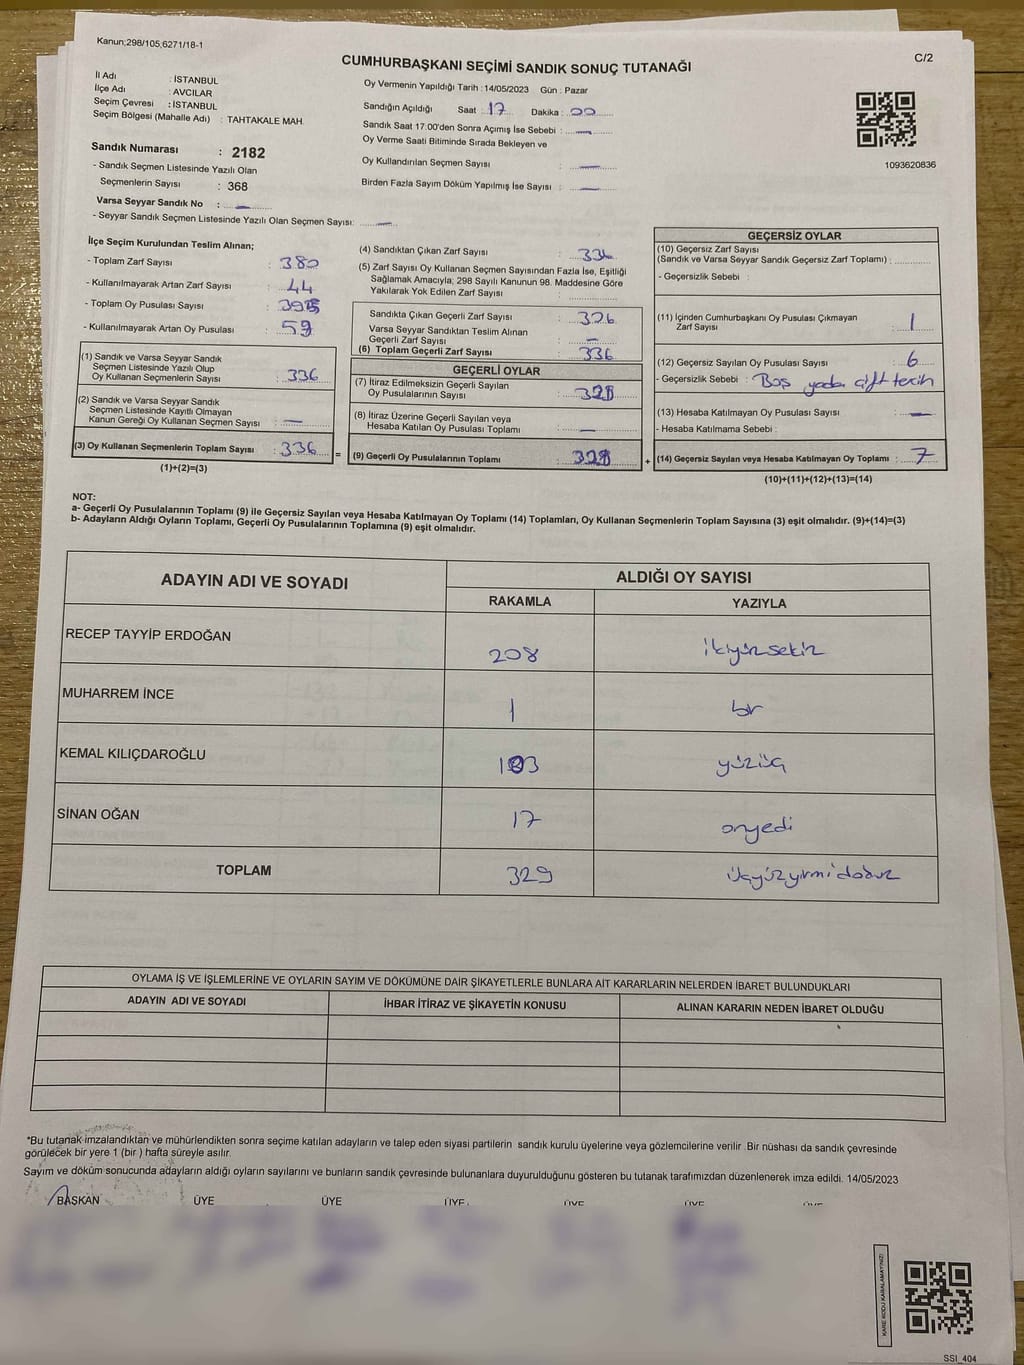 Kanun;298/105,6271/18-1
C/2
CUMHURBAŞKANI SEÇİMİ SANDIK SONUÇ TUTANAĞI
İl Adı : İSTANBUL
İlçe Adı : AVCILAR
Seçim Çevresi : İSTANBUL
Seçim Bölgesi (Mahalle Adı) : TAHTAKALE MAH.
Oy Vermenin Yapıldığı Tarih : 14/05/2023 Gün : Pazar
Sandığın Açıldığı Saat : 17 Dakika : 00
Sandık Saat 17.00'den Sonra Açımış İse Sebebi : —
Oy Verme Saati Bitiminde Sırada Bekleyen ve
Oy Kullandırılan Seçmen Sayısı : —
Birden Fazla Sayım Döküm Yapılmış İse Sayısı : —
1093620836
Sandık Numarası : 2182
- Sandık Seçmen Listesinde Yazılı Olan
Seçmenlerin Sayısı : 368
Varsa Seyyar Sandık No : —
- Seyyar Sandık Seçmen Listesinde Yazılı Olan Seçmen Sayısı: —
İlçe Seçim Kurulundan Teslim Alınan;
- Toplam Zarf Sayısı : 380
- Kullanılmayarak Artan Zarf Sayısı : 44
- Toplam Oy Pusulası Sayısı : 395
- Kullanılmayarak Artan Oy Pusulası : 59
(1) Sandık ve Varsa Seyyar Sandık
Seçmen Listesinde Yazılı Olup
Oy Kullanan Seçmenlerin Sayısı : 336
(2) Sandık ve Varsa Seyyar Sandık
Seçmen Listesinde Kayıtlı Olmayan
Kanun Gereği Oy Kullanan Seçmen Sayısı : —
(3) Oy Kullanan Seçmenlerin Toplam Sayısı : 336
(1)+(2)=(3)
=
(4) Sandıktan Çıkan Zarf Sayısı : 336
(5) Zarf Sayısı Oy Kullanan Seçmen Sayısından Fazla İse, Eşitliği
Sağlamak Amacıyla; 298 Sayılı Kanunun 98. Maddesine Göre
Yakılarak Yok Edilen Zarf Sayısı :
Sandıkta Çıkan Geçerli Zarf Sayısı : 336
Varsa Seyyar Sandıktan Teslim Alınan
Geçerli Zarf Sayısı : —
(6) Toplam Geçerli Zarf Sayısı : 336
GEÇERLİ OYLAR
(7) İtiraz Edilmeksizin Geçerli Sayılan
Oy Pusulalarının Sayısı :
(8) İtiraz Üzerine Geçerli Sayılan veya
Hesaba Katılan Oy Pusulası Toplamı : —
(9) Geçerli Oy Pusulalarının Toplamı :
+
GEÇERSİZ OYLAR
(10) Geçersiz Zarf Sayısı
(Sandık ve Varsa Seyyar Sandık Geçersiz Zarf Toplamı) :
- Geçersizlik Sebebi :
(11) İçinden Cumhurbaşkanı Oy Pusulası Çıkmayan
Zarf Sayısı : 1
(12) Geçersiz Sayılan Oy Pusulası Sayısı : 6
- Geçersizlik Sebebi : Boş yada çift tercih
(13) Hesaba Katılmayan Oy Pusulası Sayısı : —
- Hesaba Katılmama Sebebi :
(14) Geçersiz Sayılan veya Hesaba Katılmayan Oy Toplamı : 7
(10)+(11)+(12)+(13)=(14)
NOT:
a- Geçerli Oy Pusulalarının Toplamı (9) ile Geçersiz Sayılan veya Hesaba Katılmayan Oy Toplamı (14) Toplamları, Oy Kullanan Seçmenlerin Toplam Sayısına (3) eşit olmalıdır. (9)+(14)=(3)
b- Adayların Aldığı Oyların Toplamı, Geçerli Oy Pusulalarının Toplamına (9) eşit olmalıdır.
ADAYIN ADI VE SOYADI
ALDIĞI OY SAYISI
RAKAMLA YAZIYLA
RECEP TAYYİP ERDOĞAN 208 ikiyüzsekiz
MUHARREM İNCE 1 bir
KEMAL KILIÇDAROĞLU 103 yüzüç
SİNAN OĞAN 17 onyedi
TOPLAM 329 üçyüzyirmidokuz
OYLAMA İŞ VE İŞLEMLERİNE VE OYLARIN SAYIM VE DÖKÜMÜNE DAİR ŞİKAYETLERLE BUNLARA AİT KARARLARIN NELERDEN İBARET BULUNDUKLARI
ADAYIN ADI VE SOYADI İHBAR İTİRAZ VE ŞİKAYETİN KONUSU ALINAN KARARIN NEDEN İBARET OLDUĞU
*Bu tutanak imzalandıktan ve mühürlendikten sonra seçime katılan adayların ve talep eden siyasi partilerin sandık kurulu üyelerine veya gözlemcilerine verilir. Bir nüshası da sandık çevresinde
görülecek bir yere 1 (bir ) hafta süreyle asılır.
Sayım ve döküm sonucunda adayların aldığı oyların sayılarını ve bunların sandık çevresinde bulunanlara duyurulduğunu gösteren bu tutanak tarafımızdan düzenlenerek imza edildi. 14/05/2023
BAŞKAN ÜYE ÜYE ÜYE ÜYE ÜYE ÜYE
KARE KODU KARALAMAYINIZ!
SSI_404